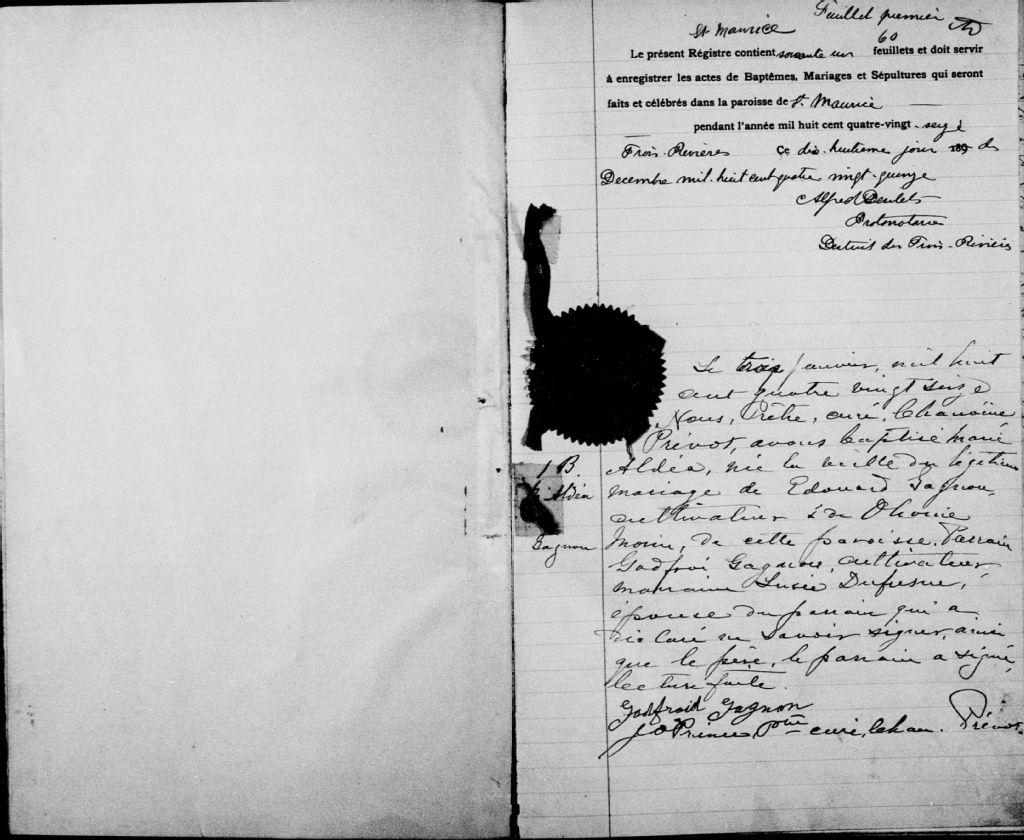 Feuillet premier
St Maurice
60
Le présent Régistre contient soixante un feuillets et doit servir
à enregistrer les actes de Baptêmes, Mariages et Sépultures qui seront
faits et célébrés dans la paroisse de St. Maurice
pendant l'année mil huit cent quatre-vingt-seize
Trois-Rivières Ce dix-huitieme jour 189 de
Decembre mil-huit cent quatre vingt-quinze
Alfred Desilets
Protonotaire
District des Trois-Rivieres
Le trois Janvier, mil huit
cent quatre vingt seize
Nous, Prêtre, curé, Chanoine
Prévot, avons baptisé Marie
Aldéa, née la veille du légitime
mariage de Edouard Gagnon,
cultivateur & de
Morin, de cette paroisse. Parrain
Godfroi Gagnon, cultivateur
marraine Lucie Dufresne,
épouse du parrain qui a
déclaré ne savoir signer, ainsi
que le père, le parrain a signé,
lecture faite.
Godfroid Gagnon
J O Prince, Ptre curé, Chan. Prévot.
1 B.
Aldéa
Gagnon